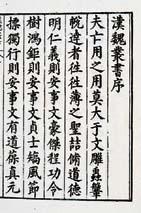 漢魏叢書序
夫亡用之用莫大于文雕蟲鞶
帨達者往往薄之聖喆脩道德
明仁義則安事文豪傑程功令
樹鴻鉅則安事文貞士䊹風節
操獨行則安事文有道葆真元